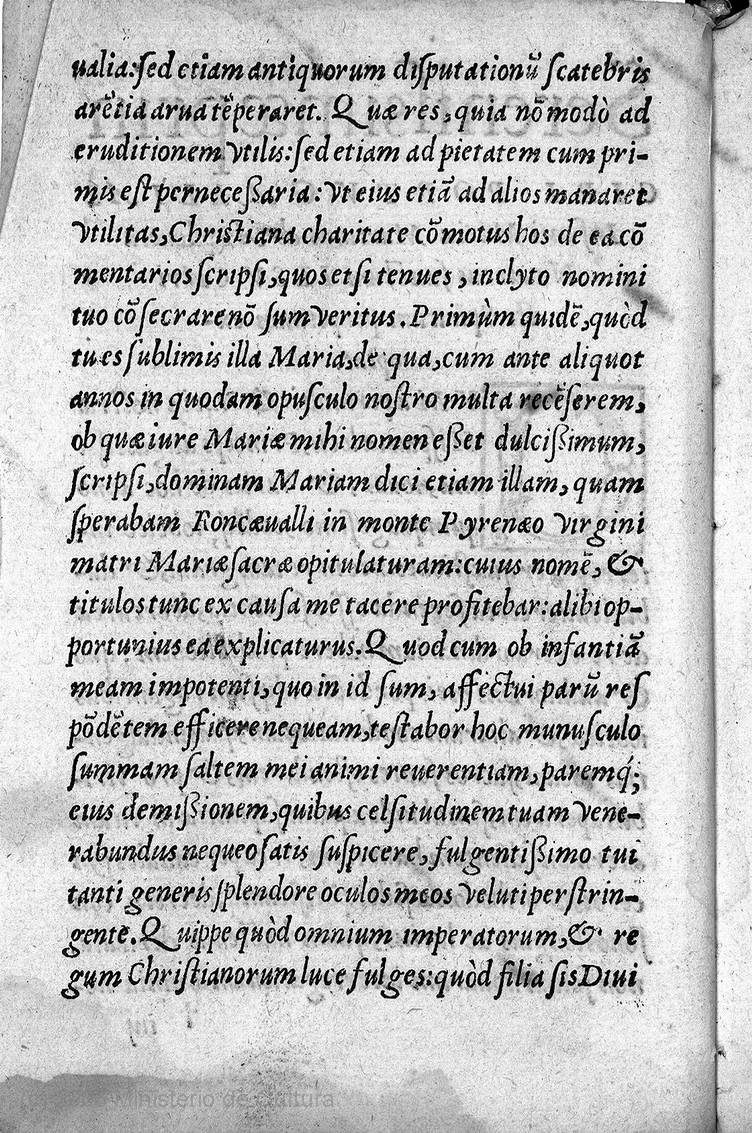 ualia:ſed etiam antiquorum diſputationũ ſcatebris
arẽtia arua tẽperaret. Quæ res, quia nõ modò ad
eruditionem vtilis: ſed etiam ad pietatem cum pri-
mis eſt perneceſſaria: vt eius etiã ad alios manaret
vtilitas, Chriſtiana charitate cõmotus hos de ea cõ
mentarios ſcripſi, quos etſi tenues, inclyto nomini
tuo cõſecrare nõ ſum veritus. Primùm quidẽ, quòd
tu es ſublimis illa Maria, de qua, cum ante aliquot
annos in quodam opuſculo noſtro multa recẽſerem,
ob quæ iure Mariæ mihi nomen eſſet dulciſſimum,
ſcripſi, dominam Mariam dici etiam illam, quam
ſperabam Roncæualli in monte Pyrenæo virgini
matri Mariæ ſacræ opitulaturam: cuius nomẽ, &
titulos tunc ex cauſa me tacere profitebar: alibi op-
portunius ea explicaturus. Quod cum ob infantiã
meam impotenti, quo in id ſum, affectui parũ reſ
põdẽtem efficere nequeam, teſtabor hoc munuſculo
ſummam ſaltem mei animi reuerentiam, paremq́;
eius demiſſionem, quibus celſitudinem tuam vene-
rabundus nequeo ſatis ſuſpicere, fulgentiſſimo tui
tanti generis ſplendore oculos meos veluti perſtrin-
gente. Quippe quòd omnium imperatorum, & re
gum Chriſtianorum luce fulges: quòd filia ſis Diui
Ministerio de Cultura